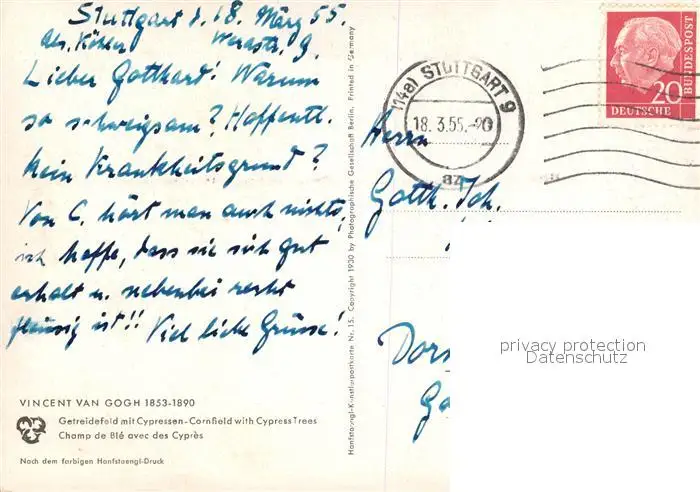 Stuttgart d. 18. März 55.
Abs. Köhler Werastr. 9.
Lieber Gotthard! Warum
so schweigsam? Hoffentl.
kein Krankheitsgrund?
Von C. hört man auch nichts,
ich hoffe, dass sie sich gut
erholt u. nebenbei recht
fleissig ist!! Viel liebe Grüsse!
VINCENT VAN GOGH 1853-1890
Getreidefeld mit Cypressen - Cornfield with Cypress Trees
Champ de Blé avec des Cyprès
Nach dem farbigen Hanfstaengl-Druck
Hanfstaengl-Künstlerpostkarte Nr. 15. Copyright 1930 by Photographische Gesellschaft Berlin. Printed in Germany
(14a) STUTTGART 9
18.3.55.-20
az
DEUTSCHE
BUNDESPOST
20
Herrn
Gotth. Joh.
privacy protection
Datenschutz